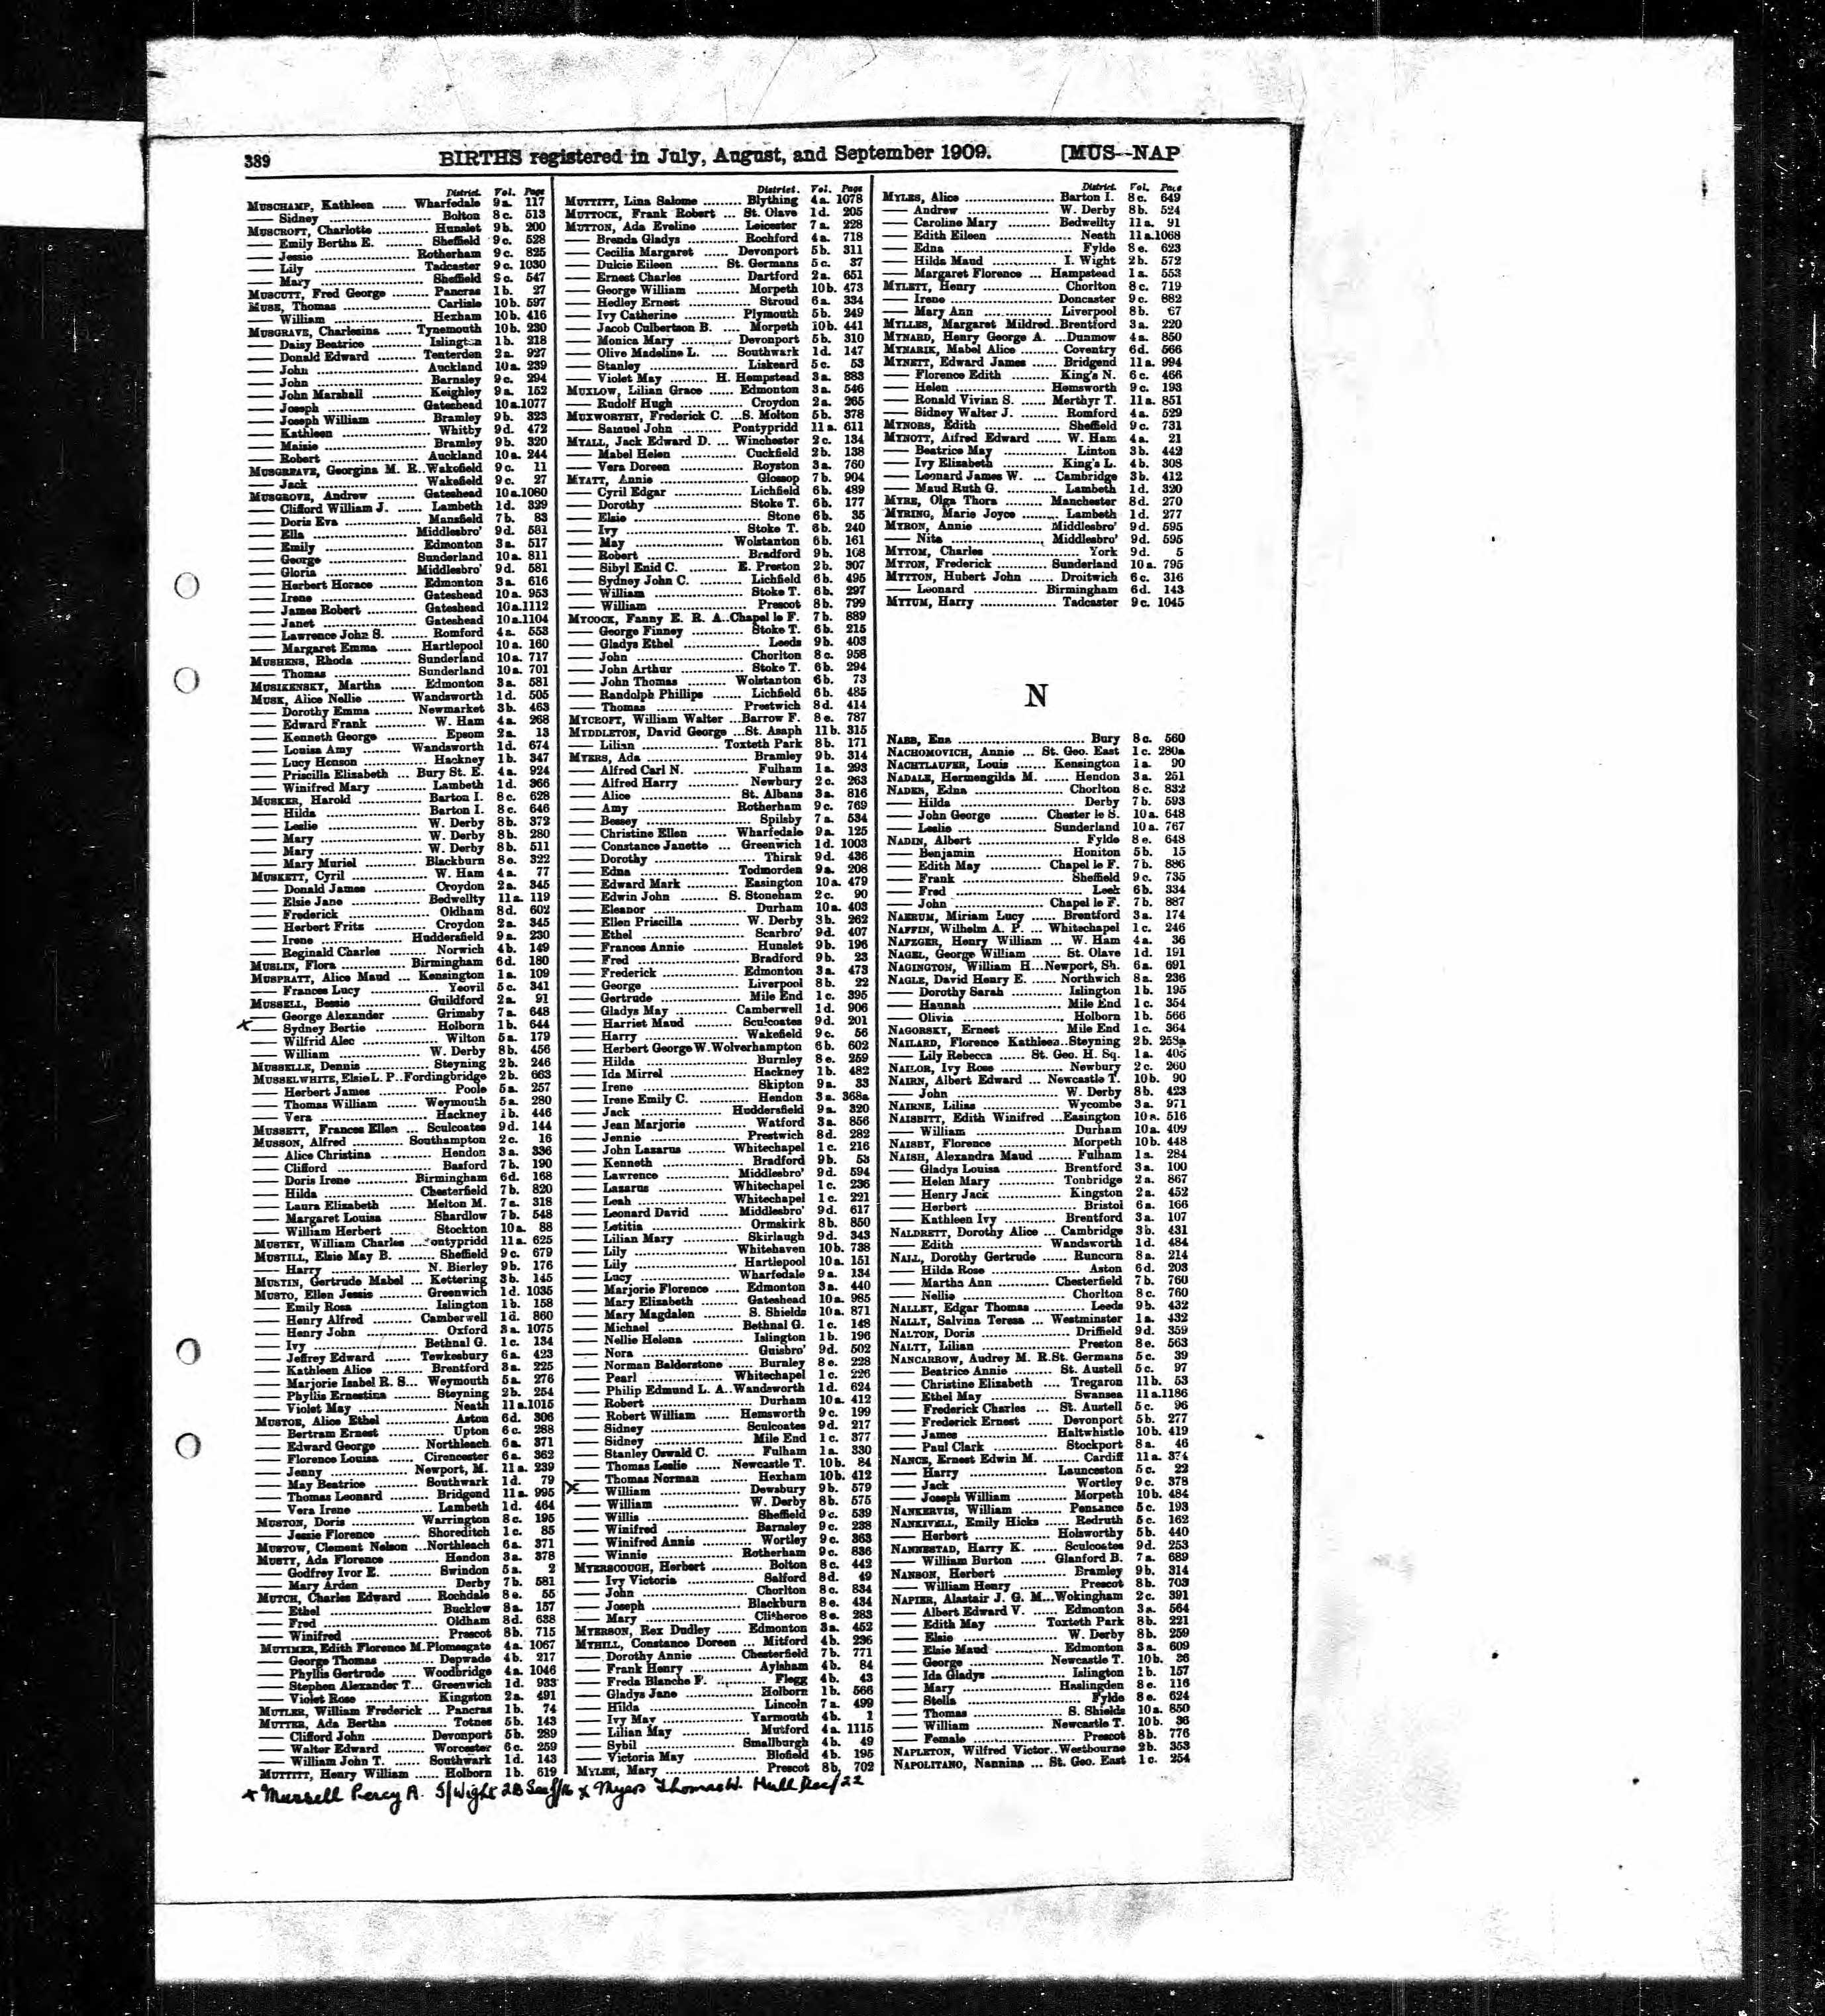 389 BIRTHS registered in July, August, and September 1909. [MUS--NAP
District. Vol. Page
MUSCHAMP, Kathleen ...... Wharfedale 9a. 117
—— Sidney ...... Bolton 8c. 513
MUSCROFT, Charlotte ...... Hunslet 9b. 200
—— Emily Bertha E. ...... Sheffield 9c. 528
—— Jessie ...... Rotherham 9c. 825
—— Lily ...... Tadcaster 9c. 1030
—— Mary ...... Sheffield 9c. 547
MUSCUTT, Fred George ...... Pancras 1b. 27
MUSE, Thomas ...... Carlisle 10b. 597
—— William ...... Hexham 10b. 416
MUSGRAVE, Charlesina ...... Tynemouth 10b. 230
—— Daisy Beatrice ...... Islington 1b. 218
—— Donald Edward ...... Tenterden 2a. 927
—— John ...... Auckland 10a. 239
—— John ...... Barnsley 9c. 294
—— John Marshall ...... Keighley 9a. 152
—— Joseph ...... Gateshead 10a. 1077
—— Joseph William ...... Bramley 9b. 323
—— Kathleen ...... Whitby 9d. 472
—— Maisie ...... Bramley 9b. 320
—— Robert ...... Auckland 10a. 244
MUSGREAVE, Georgina M. R.. Wakefield 9c. 11
—— Jack ...... Wakefield 9c. 27
MUSGROVE, Andrew ...... Gateshead 10a. 1080
—— Clifford William J. ...... Lambeth 1d. 329
—— Doris Eva ...... Mansfield 7b. 83
—— Ella ...... Middlesbro' 9d. 581
—— Emily ...... Edmonton 3a. 517
—— George ...... Sunderland 10a. 811
—— Gloria ...... Middlesbro' 9d. 581
—— Herbert Horace ...... Edmonton 3a. 616
—— Irene ...... Gateshead 10a. 953
—— James Robert ...... Gateshead 10a. 1112
—— Janet ...... Gateshead 10a. 1104
—— Lawrence John S. ...... Romford 4a. 553
—— Margaret Emma ...... Hartlepool 10a. 160
MUSHENS, Rhoda ...... Sunderland 10a. 717
—— Thomas ...... Sunderland 10a. 701
MUSIKENSKY, Martha ...... Edmonton 3a. 581
MUSK, Alice Nellie ...... Wandsworth 1d. 505
—— Dorothy Emma ...... Newmarket 3b. 463
—— Edward Frank ...... W. Ham 4a. 268
—— Kenneth George ...... Epsom 2a. 13
—— Louisa Amy ...... Wandsworth 1d. 674
—— Lucy Henson ...... Hackney 1b. 347
—— Priscilla Elizabeth ... Bury St. E. 4a. 924
—— Winifred Mary ...... Lambeth 1d. 366
MUSKER, Harold ...... Barton I. 8c. 628
—— Hilda ...... Barton I. 8c. 646
—— Leslie ...... W. Derby 8b. 372
—— Mary ...... W. Derby 8b. 280
—— Mary ...... W. Derby 8b. 511
—— Mary Muriel ...... Blackburn 8e. 322
MUSKETT, Cyril ...... W. Ham 4a. 77
—— Donald James ...... Croydon 2a. 345
—— Elsie Jane ...... Bedwellty 11a. 119
—— Frederick ...... Oldham 8d. 602
—— Herbert Fritz ...... Croydon 2a. 345
—— Irene ...... Huddersfield 9a. 230
—— Reginald Charles ...... Norwich 4b. 149
MUSLIN, Flora ...... Birmingham 6d. 180
MUSPRATT, Alice Maud ... Kensington 1a. 109
—— Frances Lucy ...... Yeovil 5c. 341
MUSSELL, Bessie ...... Guildford 2a. 91
—— George Alexander ...... Grimsby 7a. 648
x —— Sydney Bertie ...... Holborn 1b. 644
—— Wilfrid Alec ...... Wilton 5a. 179
—— William ...... W. Derby 8b. 456
MUSSELLE, Dennis ...... Steyning 2b. 246
MUSSELWHITE, Elsie L. P.. Fordingbridge 2b. 663
—— Herbert James ...... Poole 5a. 257
—— Thomas William ...... Weymouth 5a. 280
—— Vera ...... Hackney 1b. 446
MUSSETT, Frances Ellen ... Sculcoates 9d. 144
MUSSON, Alfred ...... Southampton 2c. 16
—— Alice Christina ...... Hendon 3a. 336
—— Clifford ...... Basford 7b. 190
—— Doris Irene ...... Birmingham 6d. 168
—— Hilda ...... Chesterfield 7b. 820
—— Laura Elizabeth ...... Melton M. 7a. 318
—— Margaret Louisa ...... Shardlow 7b. 548
—— William Herbert ...... Stockton 10a. 88
MUSTEY, William Charles ... Pontypridd 11a. 625
MUSTILL, Elsie May B. ...... Sheffield 9c. 679
—— Harry ...... N. Bierley 9b. 176
MUSTIN, Gertrude Mabel ... Kettering 3b. 145
MUSTO, Ellen Jessie ...... Greenwich 1d. 1035
—— Emily Rosa ...... Islington 1b. 158
—— Henry Alfred ...... Camberwell 1d. 860
—— Henry John ...... Oxford 3a. 1075
—— Ivy ...... Bethnal G. 1c. 134
—— Jeffrey Edward ...... Tewkesbury 6a. 423
—— Kathleen Alice ...... Brentford 3a. 225
—— Marjorie Isabel R. S... Weymouth 5a. 276
—— Phyllis Ernestina ...... Steyning 2b. 254
—— Violet May ...... Neath 11a. 1015
MUSTOE, Alice Ethel ...... Aston 6d. 306
—— Bertram Ernest ...... Upton 6c. 288
—— Edward George ...... Northleach 6a. 371
—— Florence Louisa ...... Cirencester 6a. 362
—— Jenny ...... Newport, M. 11a. 239
—— May Beatrice ...... Southwark 1d. 79
—— Thomas Leonard ...... Bridgend 11a. 995
—— Vera Irene ...... Lambeth 1d. 464
MUSTON, Doris ...... Warrington 8c. 195
—— Jessie Florence ...... Shoreditch 1c. 85
MUSTOW, Clement Nelson ... Northleach 6a. 371
MUSTY, Ada Florence ...... Hendon 3a. 378
—— Godfrey Ivor E. ...... Swindon 5a. 2
—— Mary Arden ...... Derby 7b. 581
MUTCH, Charles Edward ...... Rochdale 8e. 55
—— Ethel ...... Bucklow 8a. 157
—— Fred ...... Oldham 8d. 638
—— Winifred ...... Prescot 8b. 715
MUTIMER, Edith Florence M. Plomesgate 4a. 1067
—— George Thomas ...... Depwade 4b. 217
—— Phyllis Gertrude ...... Woodbridge 4a. 1046
—— Stephen Alexander T... Greenwich 1d. 933
—— Violet Rose ...... Kingston 2a. 491
MUTLER, William Frederick ... Pancras 1b. 74
MUTTER, Ada Bertha ...... Totnes 5b. 143
—— Clifford John ...... Devonport 5b. 289
—— Walter Edward ...... Worcester 6c. 259
—— William John T. ...... Southwark 1d. 143
MUTTITT, Henry William ...... Holborn 1b. 619
District. Vol. Page
MUTTITT, Lina Salome ...... Blything 4a. 1078
MUTTOCK, Frank Robert ... St. Olave 1d. 205
MUTTON, Ada Eveline ...... Leicester 7a. 228
—— Brenda Gladys ...... Rochford 4a. 718
—— Cecilia Margaret ...... Devonport 5b. 311
—— Dulcie Eileen ...... St. Germans 5c. 37
—— Ernest Charles ...... Dartford 2a. 651
—— George William ...... Morpeth 10b. 473
—— Hedley Ernest ...... Stroud 6a. 334
—— Ivy Catherine ...... Plymouth 5b. 249
—— Jacob Culbertson B. .... Morpeth 10b. 441
—— Monica Mary ...... Devonport 5b. 310
—— Olive Madeline L. .... Southwark 1d. 147
—— Stanley ...... Liskeard 5c. 53
—— Violet May ...... H. Hempstead 3a. 883
MUXLOW, Lilian Grace ...... Edmonton 3a. 546
—— Rudolf Hugh ...... Croydon 2a. 265
MUXWORTHY, Frederick C. ... S. Molton 5b. 378
—— Samuel John ...... Pontypridd 11a. 611
MYALL, Jack Edward D. ... Winchester 2c. 134
—— Mabel Helen ...... Cuckfield 2b. 138
—— Vera Doreen ...... Royston 3a. 760
MYATT, Annie ...... Glossop 7b. 904
—— Cyril Edgar ...... Lichfield 6b. 489
—— Dorothy ...... Stoke T. 6b. 177
—— Elsie ...... Stone 6b. 35
—— Ivy ...... Stoke T. 6b. 240
—— May ...... Wolstanton 6b. 161
—— Robert ...... Bradford 9b. 168
—— Sibyl Enid C. ...... E. Preston 2b. 307
—— Sydney John C. ...... Lichfield 6b. 495
—— William ...... Stoke T. 6b. 297
—— William ...... Prescot 8b. 799
MYCOCK, Fanny E. R. A.. Chapel le F. 7b. 889
—— George Finney ...... Stoke T. 6b. 215
—— Gladys Ethel ...... Leeds 9b. 403
—— John ...... Chorlton 8c. 958
—— John Arthur ...... Stoke T. 6b. 294
—— John Thomas ...... Wolstanton 6b. 73
—— Randolph Phillips ...... Lichfield 6b. 485
—— Thomas ...... Prestwich 8d. 414
MYCROFT, William Walter ... Barrow F. 8e. 787
MYDDLETON, David George ... St. Asaph 11b. 315
—— Lilian ...... Toxteth Park 8b. 171
MYERS, Ada ...... Bramley 9b. 314
—— Alfred Carl N. ...... Fulham 1a. 293
—— Alfred Harry ...... Newbury 2c. 263
—— Alice ...... St. Albans 3a. 816
—— Amy ...... Rotherham 9c. 769
—— Bessey ...... Spilsby 7a. 534
—— Christine Ellen ...... Wharfedale 9a. 125
—— Constance Janette ... Greenwich 1d. 1003
—— Dorothy ...... Thirsk 9d. 436
—— Edna ...... Todmorden 9a. 208
—— Edward Mark ...... Easington 10a. 479
—— Edwin John ...... S. Stoneham 2c. 90
—— Eleanor ...... Durham 10a. 403
—— Ellen Priscilla ...... W. Derby 8b. 262
—— Ethel ...... Scarbro' 9d. 407
—— Frances Annie ...... Hunslet 9b. 196
—— Fred ...... Bradford 9b. 23
—— Frederick ...... Edmonton 3a. 473
—— George ...... Liverpool 8b. 22
—— Gertrude ...... Mile End 1c. 395
—— Gladys May ...... Camberwell 1d. 906
—— Harriet Maud ...... Sculcoates 9d. 201
—— Harry ...... Wakefield 9c. 56
—— Herbert George W. Wolverhampton 6b. 602
—— Hilda ...... Burnley 8e. 259
—— Ida Mirrel ...... Hackney 1b. 482
—— Irene ...... Skipton 9a. 33
—— Irene Emily C. ...... Hendon 3a. 368a
—— Jack ...... Huddersfield 9a. 320
—— Jean Marjorie ...... Watford 3a. 856
—— Jennie ...... Prestwich 8d. 282
—— John Lazarus ...... Whitechapel 1c. 216
—— Kenneth ...... Bradford 9b. 53
—— Lawrence ...... Middlesbro' 9d. 594
—— Lazarus ...... Whitechapel 1c. 236
—— Leah ...... Whitechapel 1c. 221
—— Leonard David ...... Middlesbro' 9d. 617
—— Letitia ...... Ormskirk 8b. 850
—— Lilian Mary ...... Skirlaugh 9d. 343
—— Lily ...... Whitehaven 10b. 738
—— Lily ...... Hartlepool 10a. 151
—— Lucy ...... Wharfedale 9a. 134
—— Marjorie Florence ...... Edmonton 3a. 440
—— Mary Elizabeth ...... Gateshead 10a. 985
—— Mary Magdalen ...... S. Shields 10a. 871
—— Michael ...... Bethnal G. 1c. 148
—— Nellie Helena ...... Islington 1b. 196
—— Nora ...... Guisbro' 9d. 502
—— Norman Balderstone ...... Burnley 8e. 228
—— Pearl ...... Whitechapel 1c. 226
—— Philip Edmund L. A.. Wandsworth 1d. 624
—— Robert ...... Durham 10a. 412
—— Robert William ...... Hemsworth 9c. 199
—— Sidney ...... Sculcoates 9d. 217
—— Sidney ...... Mile End 1c. 377
—— Stanley Oswald C. ...... Fulham 1a. 330
—— Thomas Leslie ...... Newcastle T. 10b. 84
—— Thomas Norman ...... Hexham 10b. 412
x —— William ...... Dewsbury 9b. 579
—— William ...... W. Derby 8b. 575
—— Willis ...... Sheffield 9c. 539
—— Winifred ...... Barnsley 9c. 238
—— Winifred Annis ...... Wortley 9c. 363
—— Winnie ...... Rotherham 9c. 836
MYERSCOUGH, Herbert ...... Bolton 8c. 442
—— Ivy Victoria ...... Salford 8d. 49
—— John ...... Chorlton 8c. 834
—— Joseph ...... Blackburn 8e. 434
—— Mary ...... Clitheroe 8e. 283
MYERSON, Rex Dudley ...... Edmonton 3a. 452
MYHILL, Constance Doreen ... Mitford 4b. 236
—— Dorothy Annie ...... Chesterfield 7b. 771
—— Frank Henry ...... Aylsham 4b. 84
—— Freda Blanche F. ...... Flegg 4b. 43
—— Gladys Jane ...... Holborn 1b. 566
—— Hilda ...... Lincoln 7a. 499
—— Ivy May ...... Yarmouth 4b. 1
—— Lilian May ...... Mutford 4a. 1115
—— Sybil ...... Smallburgh 4b. 49
—— Victoria May ...... Blofield 4b. 195
MYLER, Mary ...... Prescot 8b. 702
District. Vol. Page
MYLES, Alice ...... Barton I. 8c. 649
—— Andrew ...... W. Derby 8b. 524
—— Caroline Mary ...... Bedwellty 11a. 91
—— Edith Eileen ...... Neath 11a. 1068
—— Edna ...... Fylde 8e. 623
—— Hilda Maud ...... I. Wight 2b. 572
—— Margaret Florence ... Hampstead 1a. 553
MYLETT, Henry ...... Chorlton 8c. 719
—— Irene ...... Doncaster 9c. 882
—— Mary Ann ...... Liverpool 8b. 67
MYLLES, Margaret Mildred.. Brentford 3a. 220
MYNARD, Henry George A. ... Dunmow 4a. 850
MYNARIK, Mabel Alice ...... Coventry 6d. 566
MYNETT, Edward James ...... Bridgend 11a. 994
—— Florence Edith ...... King's N. 6c. 466
—— Helen ...... Hemsworth 9c. 193
—— Ronald Vivian S. ...... Merthyr T. 11a. 851
—— Sidney Walter J. ...... Romford 4a. 529
MYNORS, Edith ...... Sheffield 9c. 731
MYNOTT, Alfred Edward ...... W. Ham 4a. 21
—— Beatrice May ...... Linton 3b. 442
—— Ivy Elizabeth ...... King's L. 4b. 308
—— Leonard James W. ... Cambridge 3b. 412
—— Maud Ruth G. ...... Lambeth 1d. 320
MYRE, Olga Thora ...... Manchester 8d. 270
MYRING, Marie Joyce ...... Lambeth 1d. 277
MYRON, Annie ...... Middlesbro' 9d. 595
—— Nita ...... Middlesbro' 9d. 595
MYTOM, Charles ...... York 9d. 5
MYTON, Frederick ...... Sunderland 10a. 795
MYTTON, Hubert John ...... Droitwich 6c. 316
—— Leonard ...... Birmingham 6d. 143
MYTUM, Harry ...... Tadcaster 9c. 1045
N
NABB, Ena ...... Bury 8c. 560
NACHOMOVICH, Annie ... St. Geo. East 1c. 280a
NACHTLAUFER, Louis ...... Kensington 1a. 90
NADALE, Hermengilda M. ...... Hendon 3a. 251
NADEN, Edna ...... Chorlton 8c. 832
—— Hilda ...... Derby 7b. 593
—— John George ...... Chester le S. 10a. 648
—— Leslie ...... Sunderland 10a. 767
NADIN, Albert ...... Fylde 8e. 648
—— Benjamin ...... Honiton 5b. 15
—— Edith May ...... Chapel le F. 7b. 886
—— Frank ...... Sheffield 9c. 735
—— Fred ...... Leek 6b. 334
—— John ...... Chapel le F. 7b. 887
NAERUM, Miriam Lucy ...... Brentford 3a. 174
NAFFIN, Wilhelm A. P. ... Whitechapel 1c. 246
NAFZGER, Henry William ... W. Ham 4a. 36
NAGEL, George William ...... St. Olave 1d. 191
NAGINGTON, William H... Newport, Sh. 6a. 691
NAGLE, David Henry E. ...... Northwich 8a. 236
—— Dorothy Sarah ...... Islington 1b. 195
—— Hannah ...... Mile End 1c. 354
—— Olivia ...... Holborn 1b. 566
NAGORSKY, Ernest ...... Mile End 1c. 364
NAILARD, Florence Kathleen.. Steyning 2b. 253a
—— Lily Rebecca ...... St. Geo. H. Sq. 1a. 405
NAILOR, Ivy Rose ...... Newbury 2c. 260
NAIRN, Albert Edward ... Newcastle T. 10b. 90
—— John ...... W. Derby 8b. 423
NAIRNE, Lilias ...... Wycombe 3a. 971
NAISBITT, Edith Winifred ... Easington 10a. 516
—— William ...... Durham 10a. 409
NAISBY, Florence ...... Morpeth 10b. 448
NAISH, Alexandra Maud ...... Fulham 1a. 284
—— Gladys Louisa ...... Brentford 3a. 100
—— Helen Mary ...... Tonbridge 2a. 867
—— Henry Jack ...... Kingston 2a. 452
—— Herbert ...... Bristol 6a. 166
—— Kathleen Ivy ...... Brentford 3a. 107
NALDRETT, Dorothy Alice ... Cambridge 3b. 431
—— Edith ...... Wandsworth 1d. 484
NALL, Dorothy Gertrude ...... Runcorn 8a. 214
—— Hilda Rose ...... Aston 6d. 203
—— Martha Ann ...... Chesterfield 7b. 760
—— Nellie ...... Chorlton 8c. 760
NALLEY, Edgar Thomas ...... Leeds 9b. 432
NALLY, Salvina Teresa ... Westminster 1a. 432
NALTON, Doris ...... Driffield 9d. 359
NALTY, Lilian ...... Preston 8e. 563
NANCARROW, Audrey M. R. St. Germans 5c. 39
—— Beatrice Annie ...... St. Austell 5c. 97
—— Christine Elizabeth .... Tregaron 11b. 53
—— Ethel May ...... Swansea 11a. 1186
—— Frederick Charles ... St. Austell 5c. 96
—— Frederick Ernest ...... Devonport 5b. 277
—— James ...... Haltwhistle 10b. 419
—— Paul Clark ...... Stockport 8a. 46
NANCE, Ernest Edwin M. ...... Cardiff 11a. 374
—— Harry ...... Launceston 5c. 22
—— Jack ...... Wortley 9c. 378
—— Joseph William ...... Morpeth 10b. 484
NANKERVIS, William ...... Penzance 5c. 193
NANKIVELL, Emily Hicks ...... Redruth 5c. 162
—— Herbert ...... Holsworthy 5b. 440
NANNESTAD, Harry K. ...... Sculcoates 9d. 253
—— William Burton ...... Glanford B. 7a. 689
NANSON, Herbert ...... Bramley 9b. 314
—— William Henry ...... Prescot 8b. 703
NAPIER, Alastair J. G. M... Wokingham 2c. 391
—— Albert Edward V. ...... Edmonton 3a. 564
—— Edith May ...... Toxteth Park 8b. 221
—— Elsie ...... W. Derby 8b. 259
—— Elsie Maud ...... Edmonton 3a. 609
—— George ...... Newcastle T. 10b. 36
—— Ida Gladys ...... Islington 1b. 157
—— Mary ...... Haslingden 8e. 116
—— Stella ...... Fylde 8e. 624
—— Thomas ...... S. Shields 10a. 850
—— William ...... Newcastle T. 10b. 36
—— Female ...... Prescot 8b. 776
NAPLETON, Wilfred Victor.. Westbourne 2b. 353
NAPOLITANO, Nannina ... St. Geo. East 1c. 254
x Mussell Percy A. I/Wight 2B x Myers Thomas W. Hull Dec/22